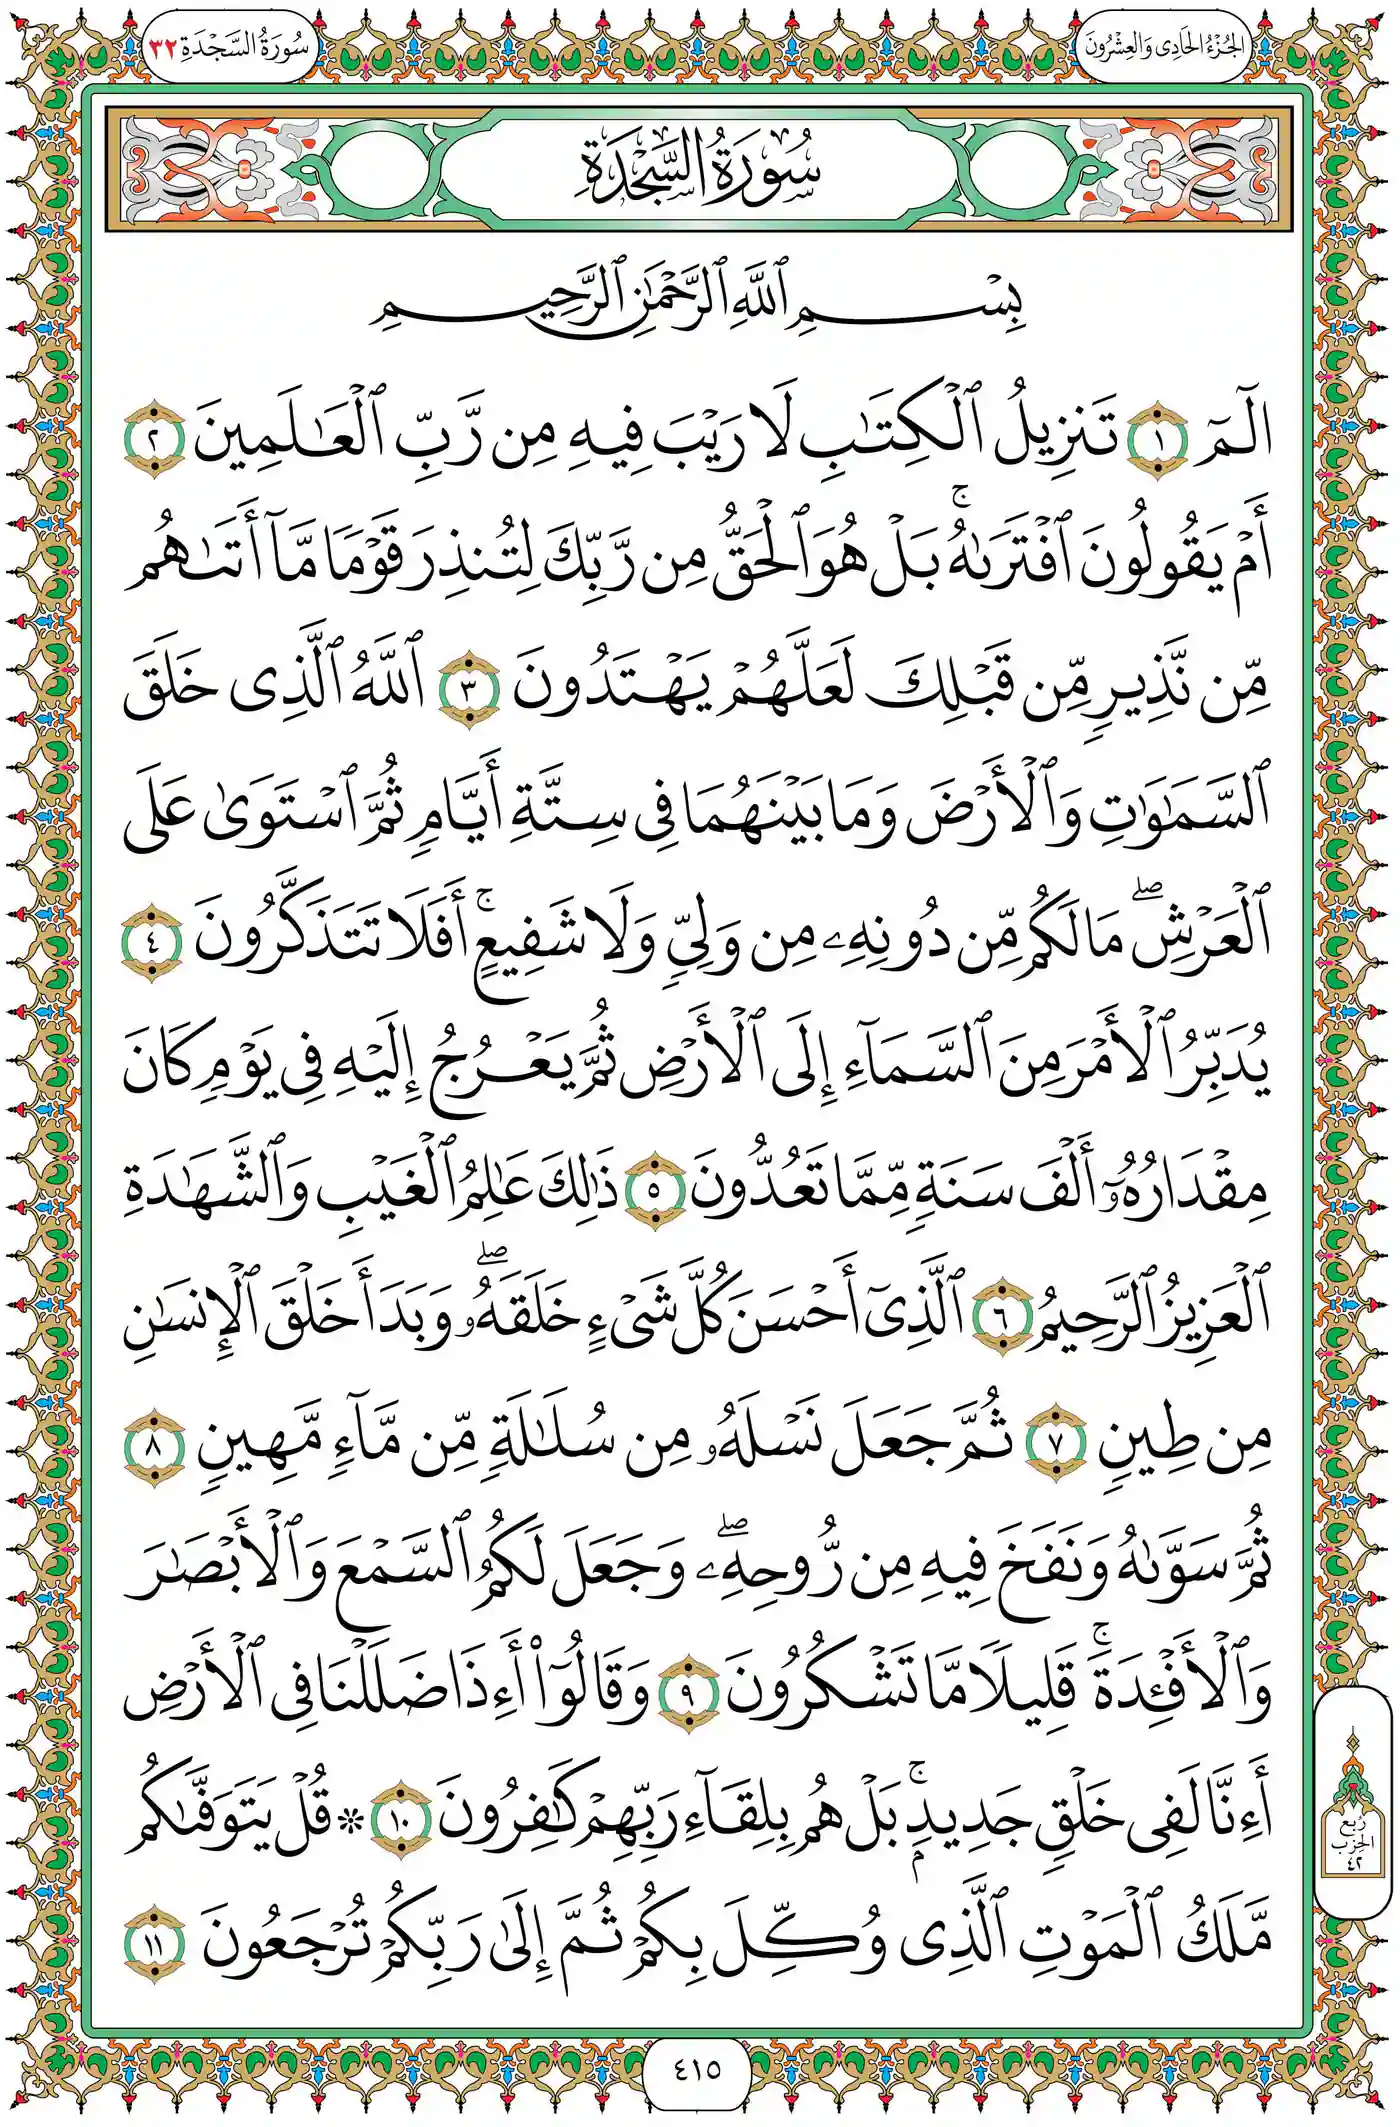 الجُزْءُ الحَادِى وَالعِشْرُونَ
سُورَةُ السَّجْدَةِ ٣٢
سُورَةُ السَّجْدَةِ
بِسْمِ ٱللَّهِ ٱلرَّحْمَٰنِ ٱلرَّحِيمِ
الٓمٓ ١ تَنزِيلُ ٱلْكِتَٰبِ لَا رَيْبَ فِيهِ مِن رَّبِّ ٱلْعَٰلَمِينَ ٢
أَمْ يَقُولُونَ ٱفْتَرَىٰهُ ۚ بَلْ هُوَ ٱلْحَقُّ مِن رَّبِّكَ لِتُنذِرَ قَوْمًا مَّآ أَتَىٰهُم
مِّن نَّذِيرٍ مِّن قَبْلِكَ لَعَلَّهُمْ يَهْتَدُونَ ٣ ٱللَّهُ ٱلَّذِى خَلَقَ
ٱلسَّمَٰوَٰتِ وَٱلْأَرْضَ وَمَا بَيْنَهُمَا فِى سِتَّةِ أَيَّامٍ ثُمَّ ٱسْتَوَىٰ عَلَى
ٱلْعَرْشِ ۖ مَا لَكُم مِّن دُونِهِۦ مِن وَلِىٍّ وَلَا شَفِيعٍ ۚ أَفَلَا تَتَذَكَّرُونَ ٤
يُدَبِّرُ ٱلْأَمْرَ مِنَ ٱلسَّمَآءِ إِلَى ٱلْأَرْضِ ثُمَّ يَعْرُجُ إِلَيْهِ فِى يَوْمٍ كَانَ
مِقْدَارُهُۥٓ أَلْفَ سَنَةٍ مِّمَّا تَعُدُّونَ ٥ ذَٰلِكَ عَٰلِمُ ٱلْغَيْبِ وَٱلشَّهَٰدَةِ
ٱلْعَزِيزُ ٱلرَّحِيمُ ٦ ٱلَّذِىٓ أَحْسَنَ كُلَّ شَىْءٍ خَلَقَهُۥ ۖ وَبَدَأَ خَلْقَ ٱلْإِنسَٰنِ
مِن طِينٍ ٧ ثُمَّ جَعَلَ نَسْلَهُۥ مِن سُلَٰلَةٍ مِّن مَّآءٍ مَّهِينٍ ٨
ثُمَّ سَوَّىٰهُ وَنَفَخَ فِيهِ مِن رُّوحِهِۦ ۖ وَجَعَلَ لَكُمُ ٱلسَّمْعَ وَٱلْأَبْصَٰرَ
وَٱلْأَفْـِٔدَةَ ۚ قَلِيلًا مَّا تَشْكُرُونَ ٩ وَقَالُوٓا۟ أَءِذَا ضَلَلْنَا فِى ٱلْأَرْضِ
أَءِنَّا لَفِى خَلْقٍ جَدِيدٍۭ ۚ بَلْ هُم بِلِقَآءِ رَبِّهِمْ كَٰفِرُونَ ١٠ ۞ قُلْ يَتَوَفَّىٰكُم
مَّلَكُ ٱلْمَوْتِ ٱلَّذِى وُكِّلَ بِكُمْ ثُمَّ إِلَىٰ رَبِّكُمْ تُرْجَعُونَ ١١
رُبع
الحِزْب
٤٢
٤١٥